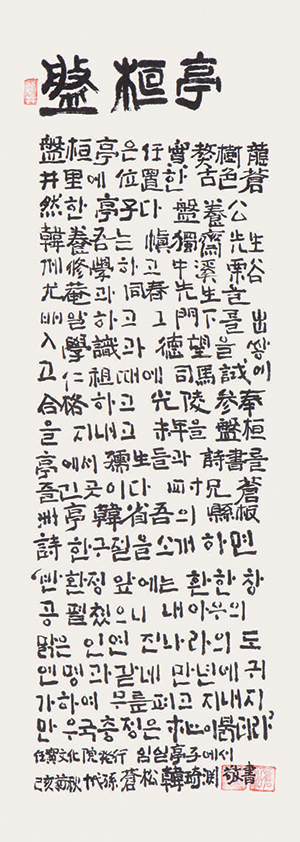 盤桓亭
盤桓亭은 任實 獒樹 龍
井里에 位置한 古色蒼
然한 亭子다 盤養公
韓養吾는 愼獨齋先生
께 修學하고 牛溪 栗谷
尤菴과 同春先生을
배알하고 그 門下를 出
入 學識과 德望을 쌓이
고 仁祖때에 司馬試
合格하고 光陵參奉
을 지내고 末年을 盤桓
亭에서 儒生들과 詩書를
즐긴곳이다 四寸兄 蒼
州亭 韓省吾의 縣板
詩 한구절을 소개하면
“반환정 앞에는 환한 창
공 펼쳤으니 내아우의
맑은 인연 진나라의 도
연명과 같네 만년에 귀
가하여 무릎펴고 지내지
만 우국충정은 心이붉더라”
任實文化院發行 임실亭子에서
己亥菊秋 代孫 蒼松 韓琦 敬書